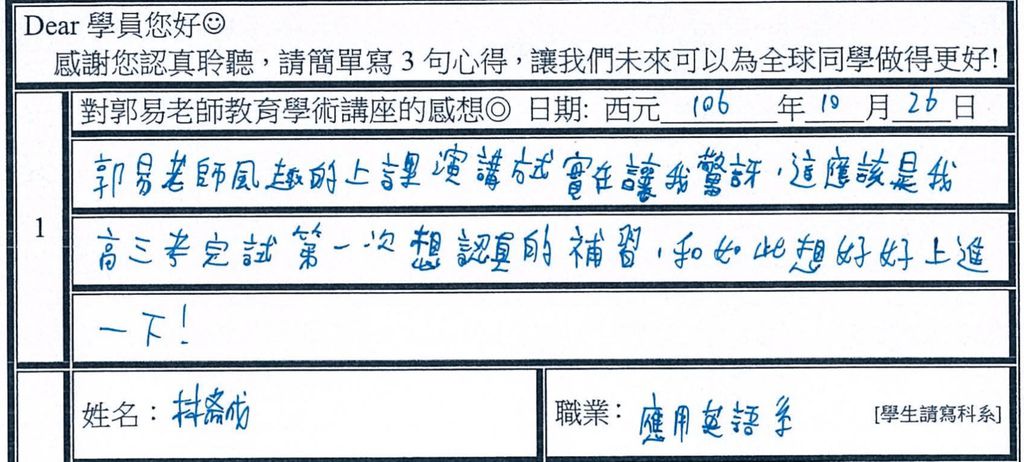 Dear 學員您好☺
感謝您認真聆聽，請簡單寫 3 句心得，讓我們未來可以為全球同學做得更好!
對郭易老師教育學術講座的感想◎ 日期: 西元 106 年 10 月 26 日
1
郭易老師風趣的上課演講方式實在讓我驚訝，這應該是我
高三考完試第一次想認真的補習，和如此想好好上進
一下！
姓名：林
職業： 應用英語系 [學生請寫科系]